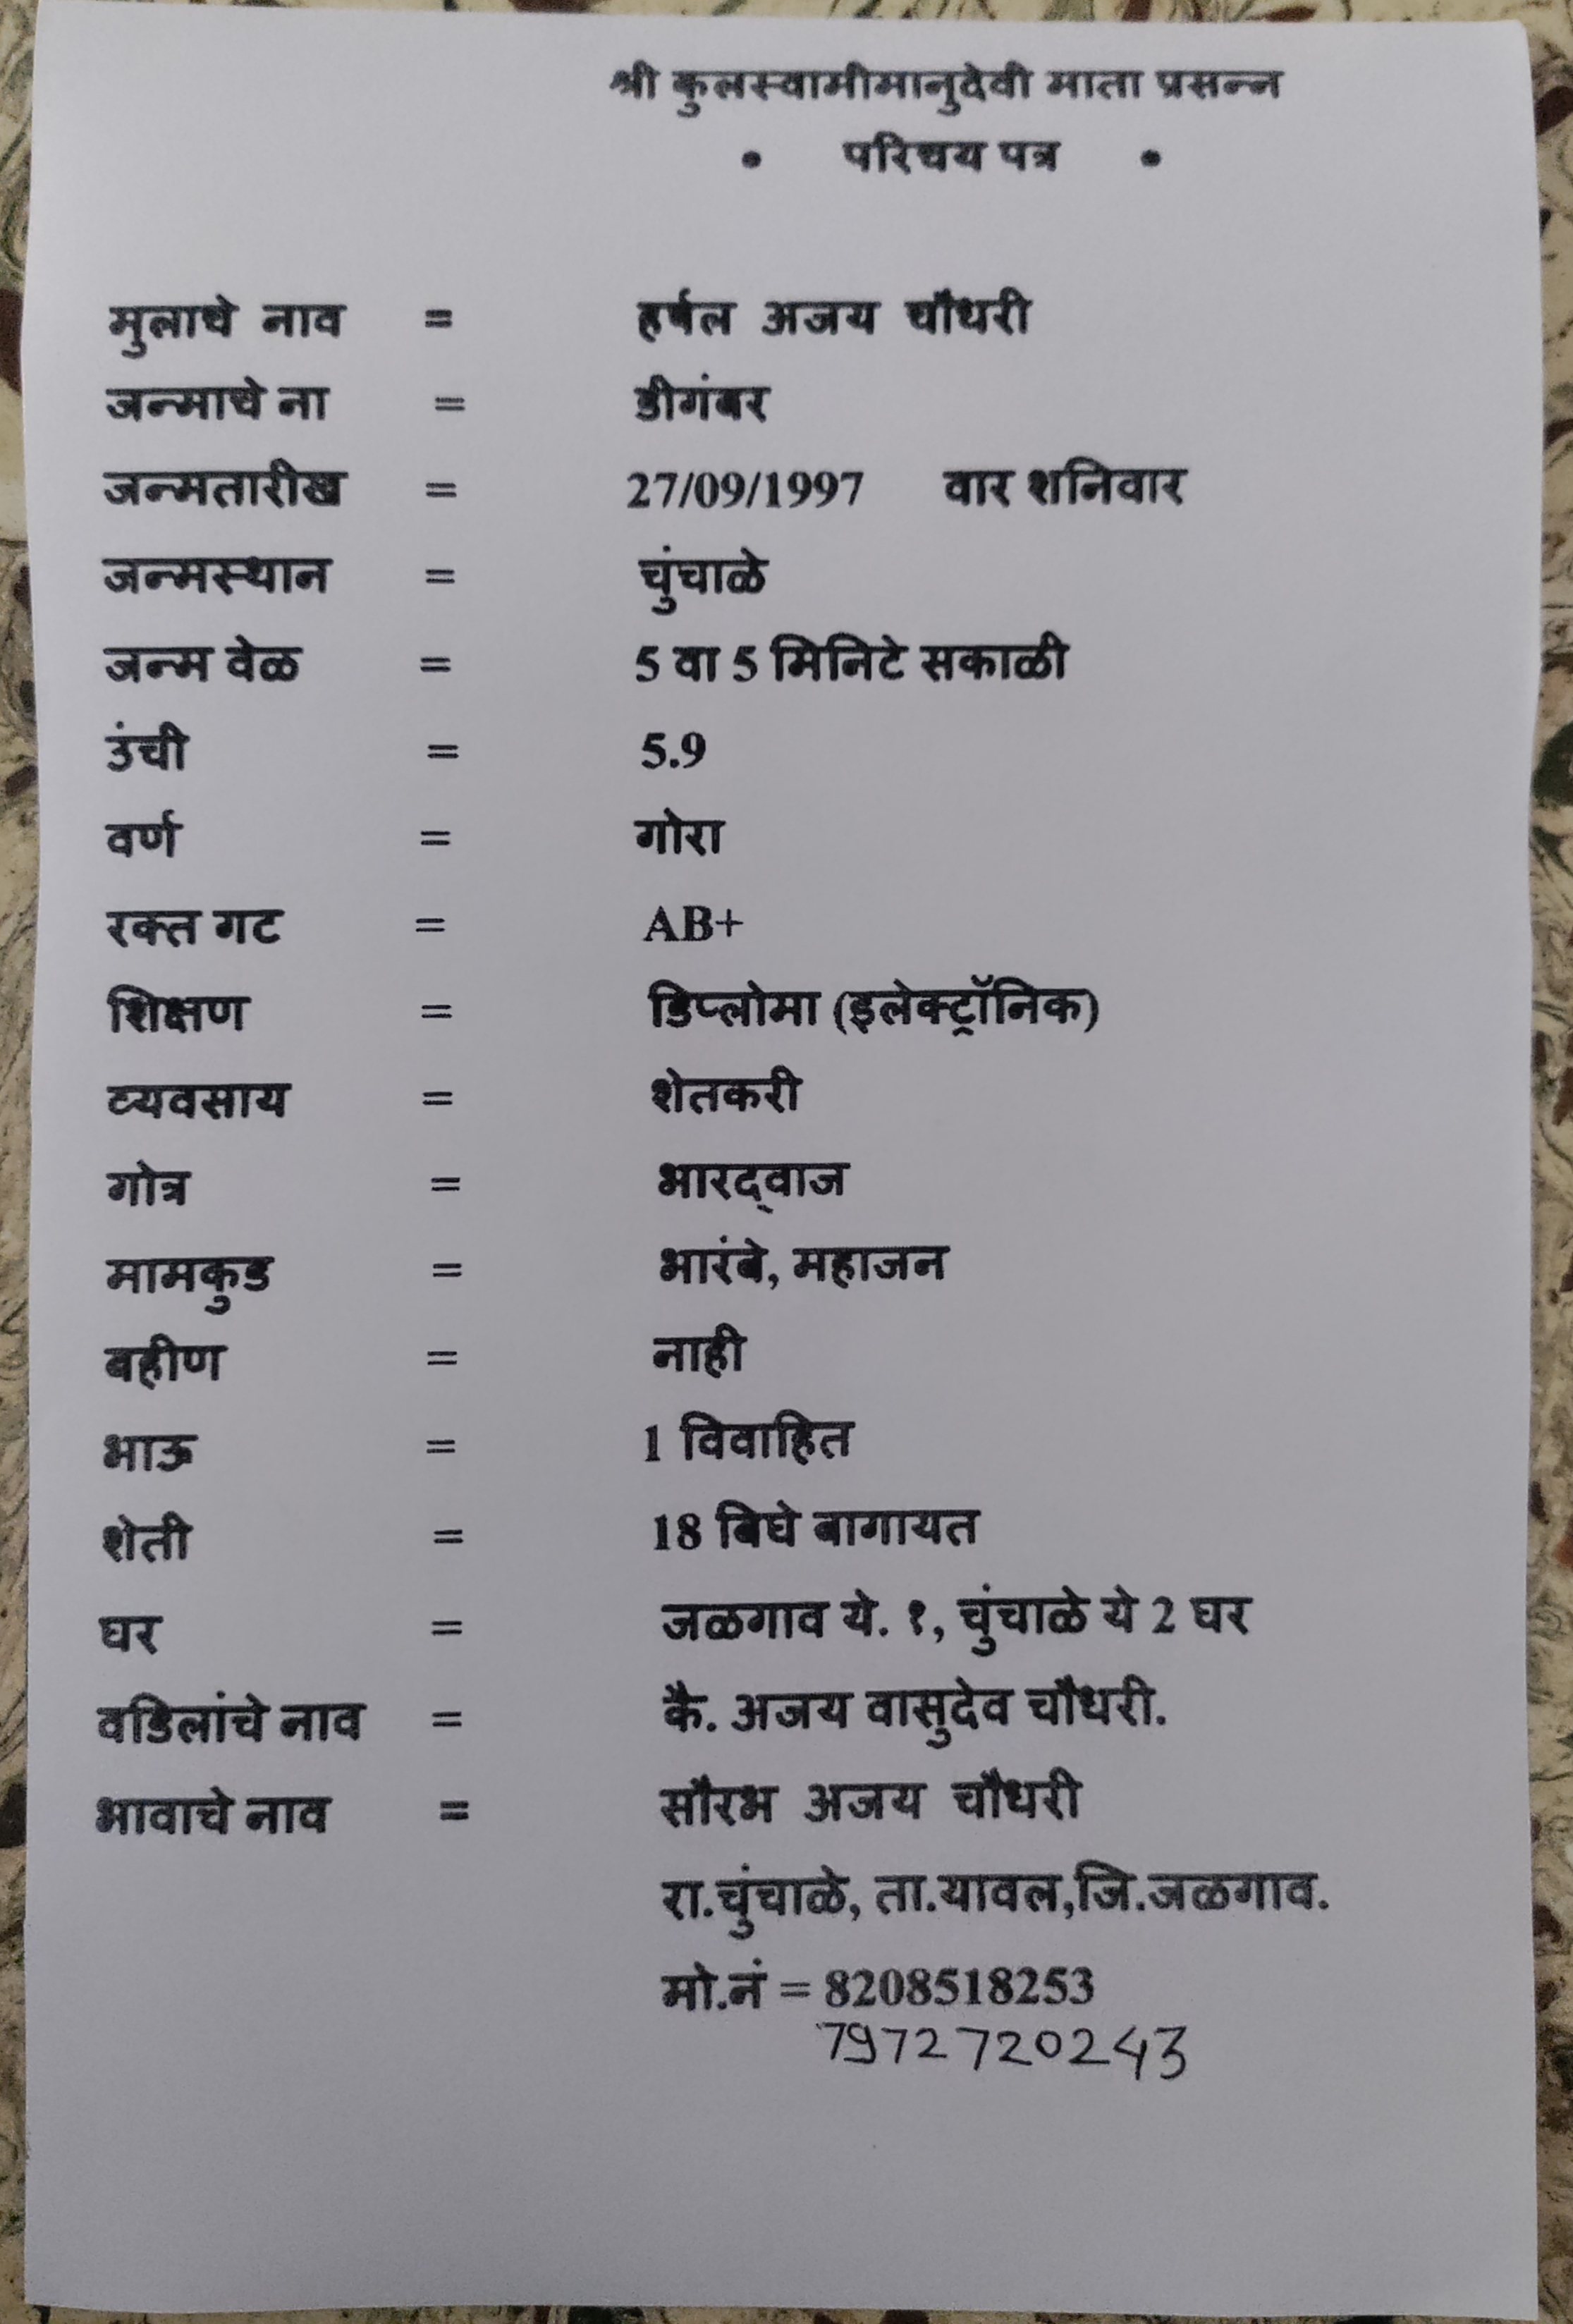 श्री कुलस्वामीमानुदेवी माता प्रसन्न
• परिचय पत्र •
मुलाचे नाव = हर्षल अजय चौधरी
जन्माचे ना = डीगंबर
जन्मतारीख = 27/09/1997 वार शनिवार
जन्मस्थान = चुंचाळे
जन्म वेळ = 5 वा 5 मिनिटे सकाळी
उंची = 5.9
वर्ण = गोरा
रक्त गट = AB+
शिक्षण = डिप्लोमा (इलेक्ट्रॉनिक)
व्यवसाय = शेतकरी
गोत्र = भारद्‌वाज
मामकुड = भारंबे, महाजन
बहीण = नाही
भाऊ = 1 विवाहित
शेती = 18 बिघे बागायत
घर = जळगाव ये. १, चुंचाळे ये 2 घर
वडिलांचे नाव = कै. अजय वासुदेव चौधरी.
भावाचे नाव = सौरभ अजय चौधरी
रा.चुंचाळे, ता.यावल,जि.जळगाव.
मो.नं = 8208518253
7972720243